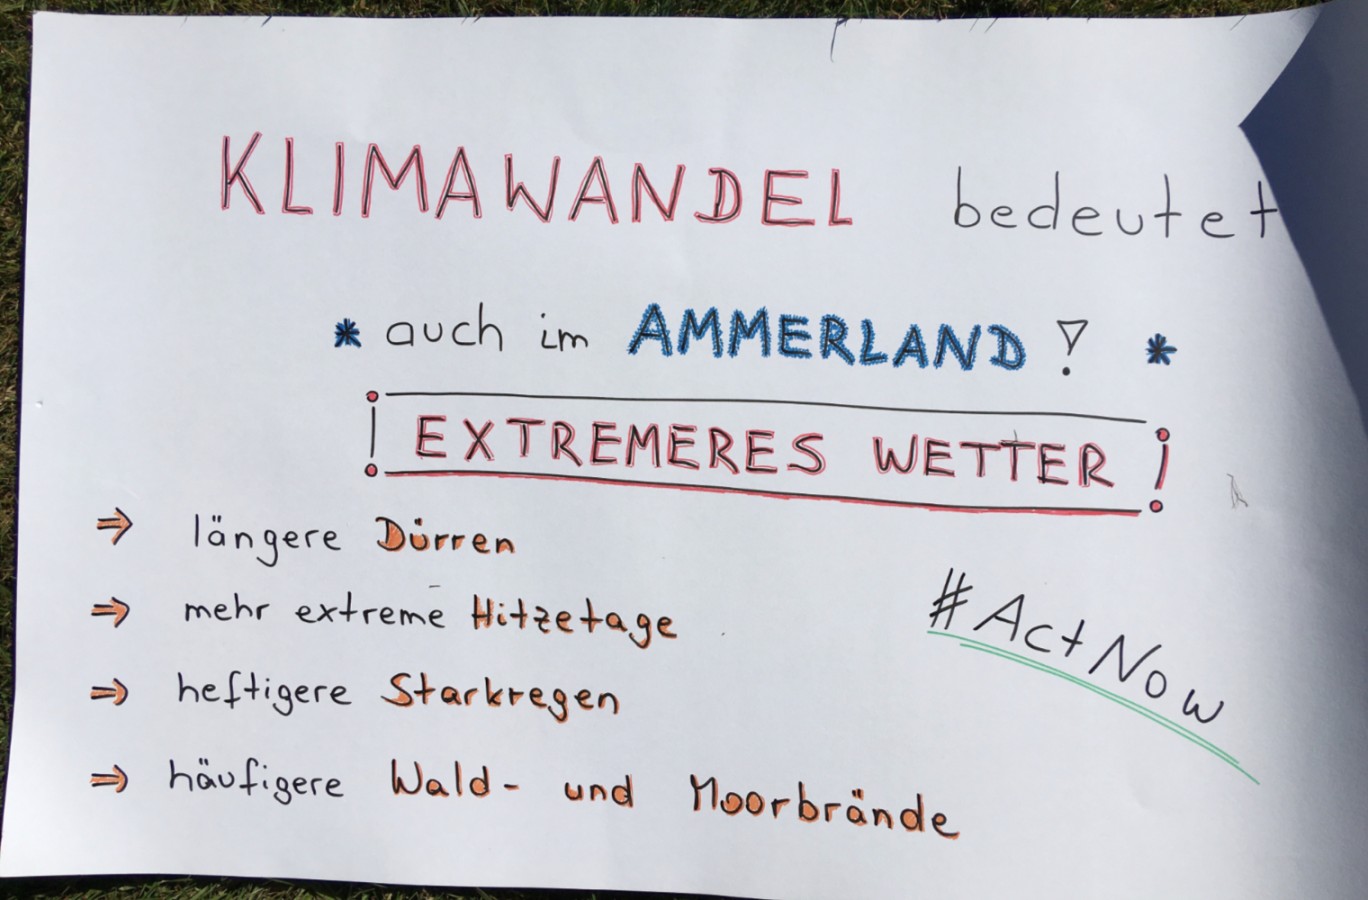 KLIMAWANDEL bedeutet
* auch im AMMERLAND! *
! EXTREMERES WETTER !
⇒ längere Dürren
⇒ mehr extreme Hitzetage
⇒ heftigere Starkregen
⇒ häufigere Wald- und Moorbrände
#ActNow